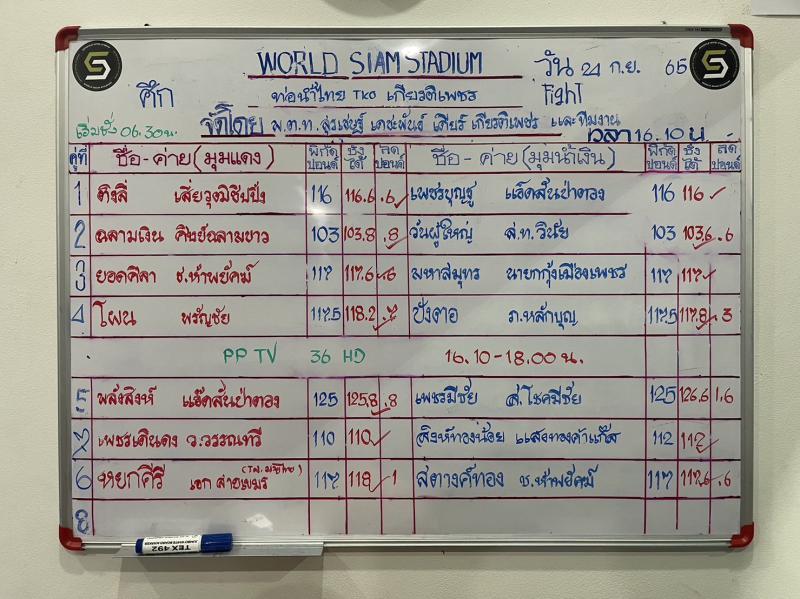 WORLD SIAM STADIUM วัน 24 ก.ย. 65
ศึก ท่อน้ำไทย TKO เกียรติเพชร Fight
เริ่มชั่ง 06.30 น. จัดโดย พ.ต.ท. สุรเชษฐ์ เดชะพันธ์ เสี่ยร์ เกียรติเพชร และทีมงาน เวลา 16.10 น.
คู่ที่ ชื่อ - ค่าย (มุมแดง) พิกัด ปอนด์ ชั่ง ได้ ลด ปอนด์ ชื่อ - ค่าย (มุมน้ำเงิน) พิกัด ปอนด์ ชั่ง ได้ ลด ปอนด์
1 ติงลี่ เสี่ยวุฒิชีปปิ้ง 116 116.6 .6 เพชรบุญชู แอ๊ดสันป่าตอง 116 116
2 ฉลามเงิน ศิษย์ฉลามขาว 103 103.8 .8 วันผู้ใหญ่ ส.ท.วินัย 103 103.6 .6
3 ยอดศิลา ช.ห้าพยัคฆ์ 117 117.6 .6 มหาสมุทร นายกกุ้งเมืองเพชร 117 117
4 โผน พรัญชัย 117.5 118.2 .7 ปังตอ ภ.หลักบุญ 117.5 117.8 .3
PP TV 36 HD 16.10-18.00 น.
5 พลังสิงห์ แอ๊ดสันป่าตอง 125 125.8 .8 เพชรมีชัย ส.โชคมีชัย 125 126.6 1.6
เพชรเดินดง ว.วรรณทวี 110 110 สิงห์ทองน้อย แสงทองคำแก๊ส 112 112
6 หยกคีรี เอก สายเขมร 117 118 1 สตางค์ทอง ช.ห้าพยัคฆ์ 117 117.6 .6
8
TEX 492